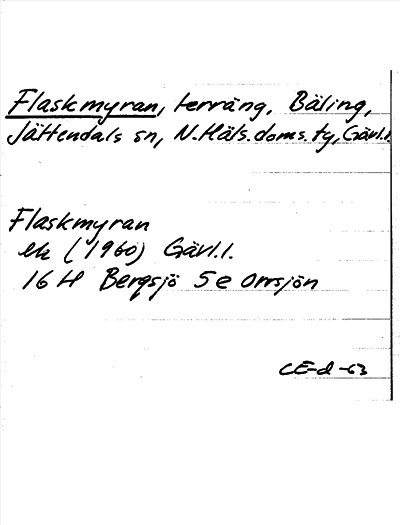 Flaskmyran, terräng, Bäling,
Jättendals sn, N. Häls. doms. ty, Gävl.l.
Flaskmyran
ek (1960) Gävl.l.
16 H Bergsjö 5 e Orrsjön
CE-d-63